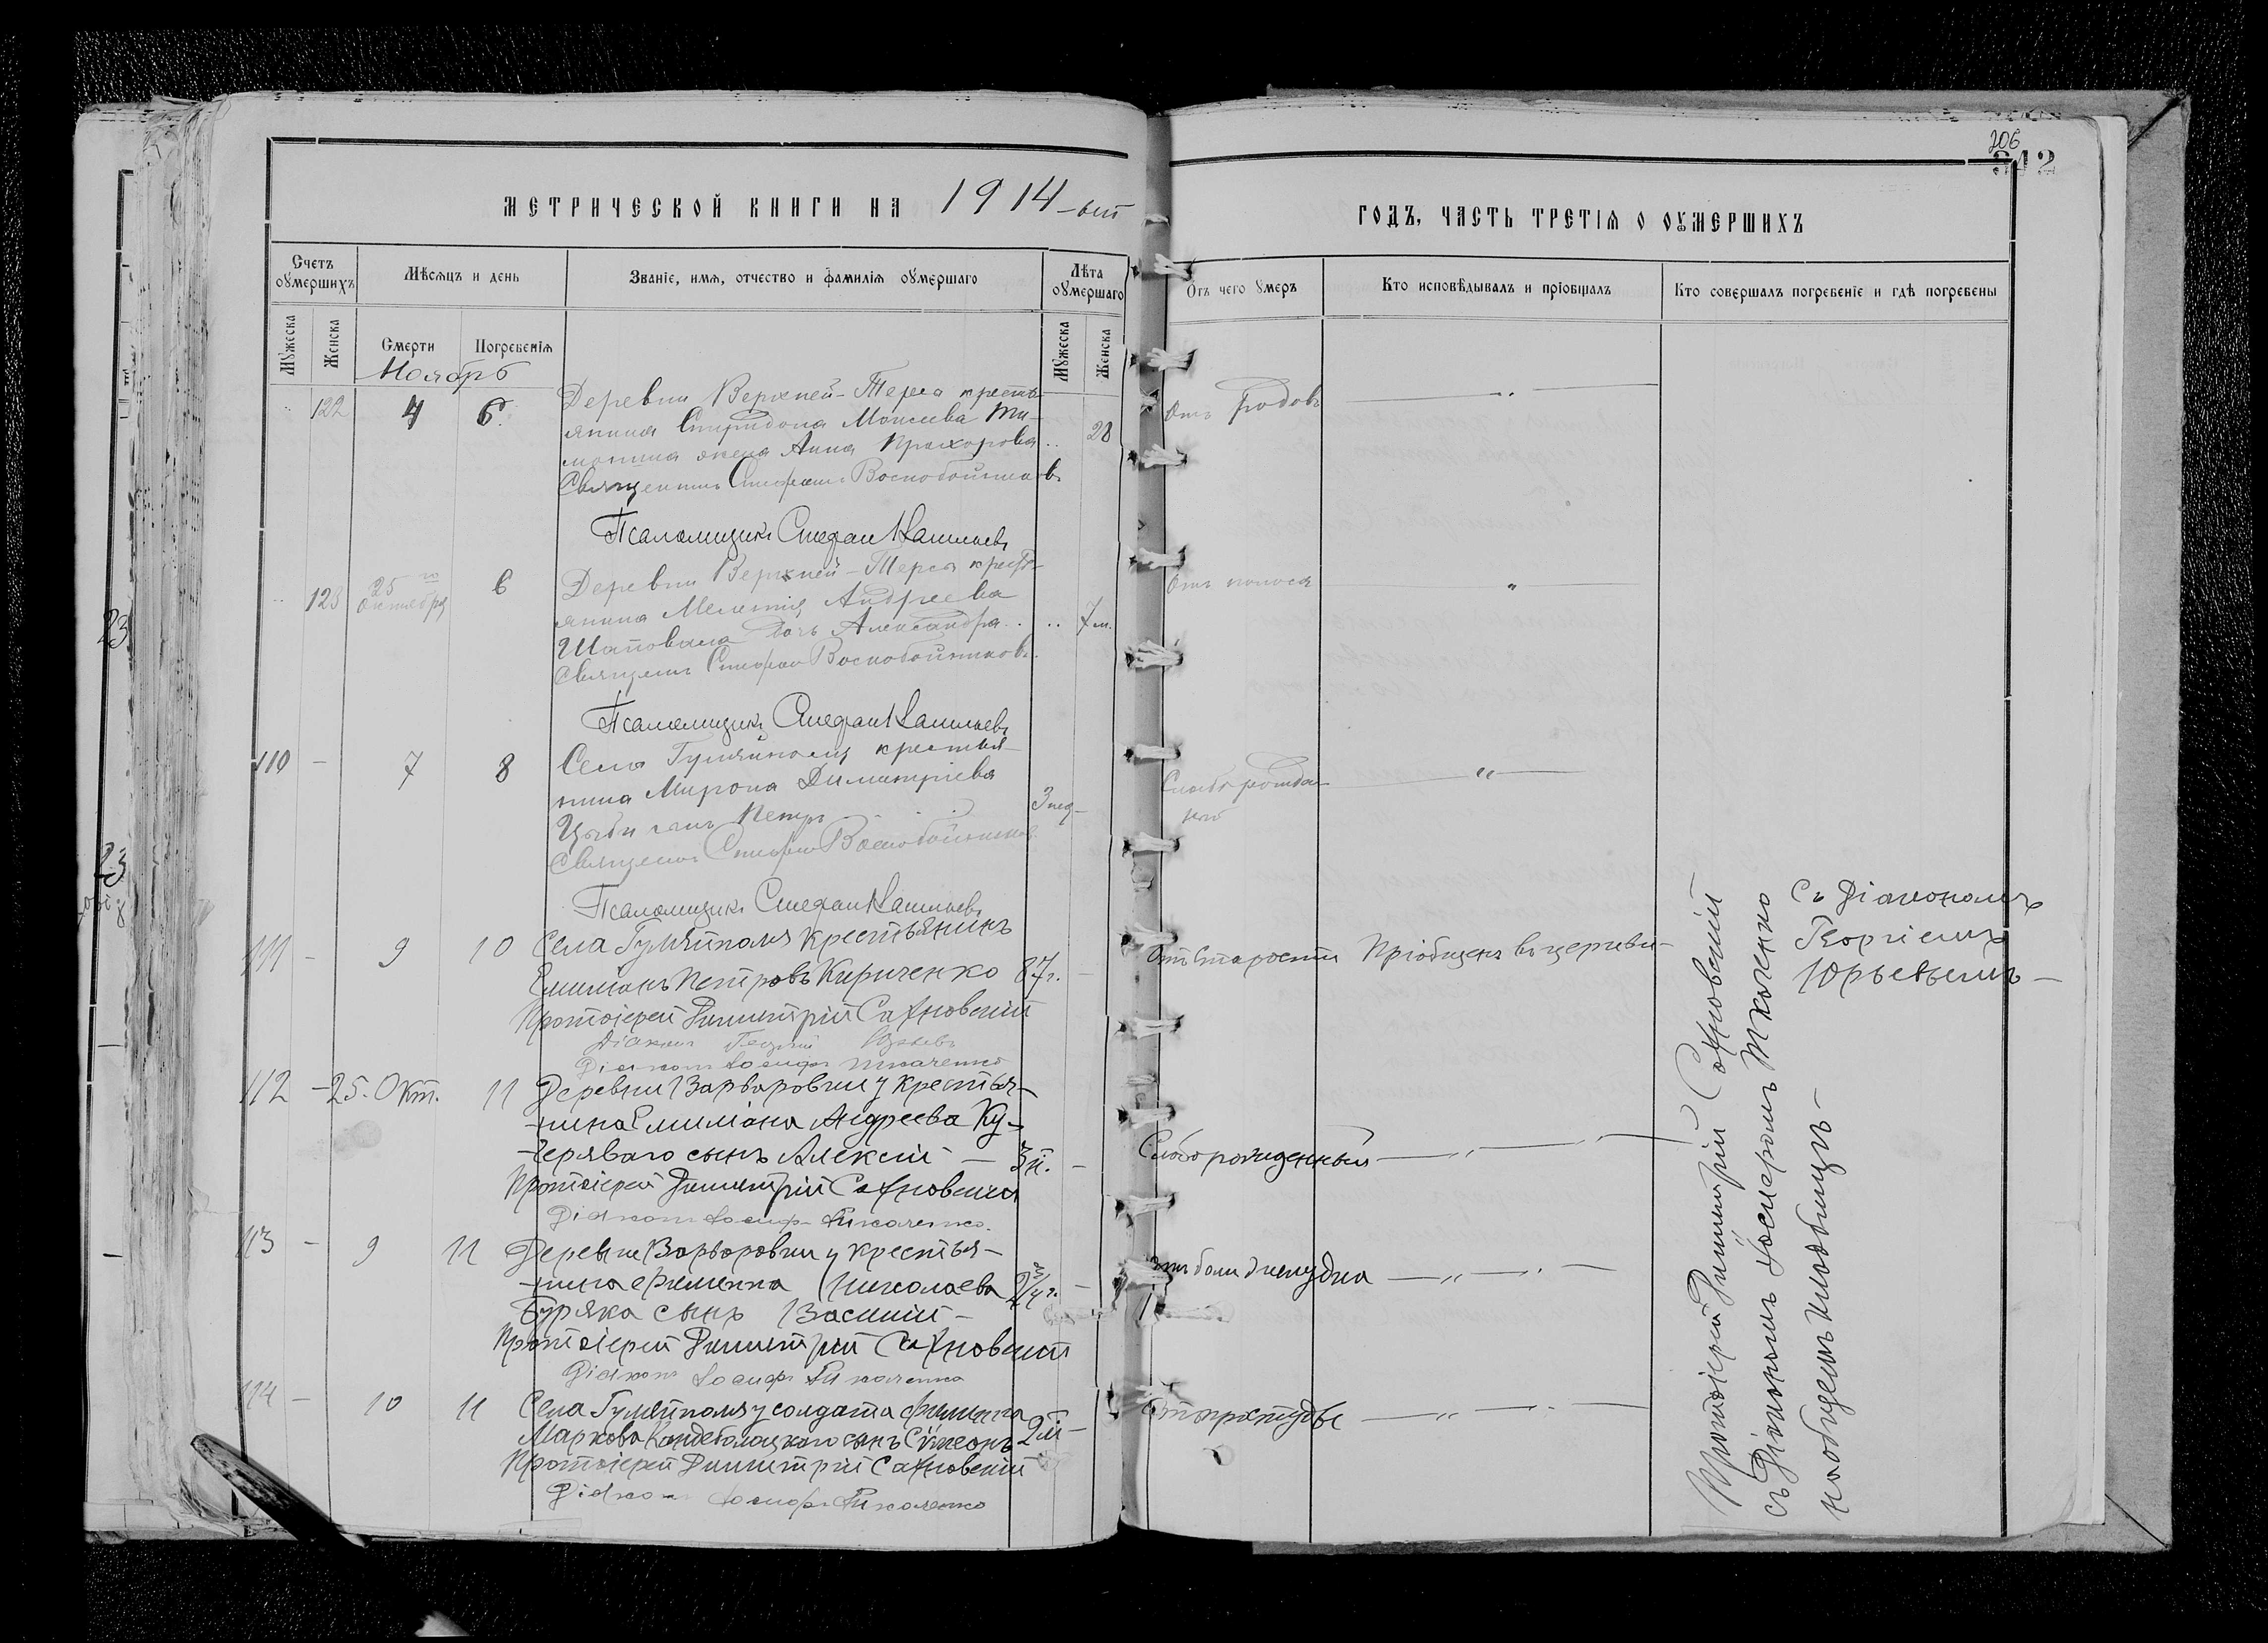 206
342
МЕТРИЧЕСКОЙ КНИГИ НА 1914-ый
ГОДЪ, ЧАСТЬ ТРЕТІЯ О ОУМЕРШИХЪ
Счетъ оумершихъ
Мѣсяцъ и день
Званіе, имя, отчество и фамилія оумершаго
Лѣта оумершаго
Отъ чего умеръ
Кто исповѣдывалъ и пріобщалъ
Кто совершалъ погребеніе и гдѣ погребены
Мужеска
Женска
Смерти
Погребенія
Мужеска
Женска
Ноябрь
122 4 6. Деревни Верхней-Терса кресть-
янина Спиридона Моисеева
жена Анна Прохорова .. 28
Отъ родовъ
Священникъ Стефанъ Воскобойниковъ
Псаломщикъ Стефанъ
123 25го Октября 6 Деревни Верхней-Терса кресть-
янина Мелетія Андреева
Шаповала дочь Александра .. 7 м.
Отъ поноса
Священ Стефанъ Воскобойниковъ.
Псаломщикъ Стефанъ
110 - 7 8 Села Гуляйполя крестья-
нина Мирона Димитріева
Цыби сынъ Петръ 3 нед-
Слабо рожден-
ный
Священ Стефанъ Воскобойников
Псаломщикъ Стефанъ
111 - 9 10 Села Гуляйполя крестьянинъ
Емиліанъ Петровъ Кириченко 87 г. -
Отъ старости Пріобщенъ въ церкви-
Протоіерей Димитрій Сахновскій
Діаконъ Георгій Юрьевъ
Діаконъ Іосифъ Ткаченко
112 - 25. Окт. 11 Деревни Варваровки у крестья-
-нина Емиліана Андреева Ку-
-черяваго сынъ Алексій - 3 н. -
Слаборожденный
Протоіерей Димитрій Сахновскій
Діаконъ Іосифъ Ткаченко.
113 - 9 11 Деревни Варваровки у крестья-
-нина Филиппа Николаева 2 3/4 г. -
Буряка сынъ Василій -
Отъ боли желудка
Протоіерей Димитрій Сахновскій
Діаконъ Іосифъ Ткаченко
114 - 10 11 Села Гуляйполя у солдата Филиппа
Маркова сынъ Симеонъ 2 м -
Отъ простуды
Протоіерей Димитрій Сахновскій
Діаконъ Іосифъ Ткаченко
Протоіерей Димитрій Сахновскій
съ Діакономъ Іосифомъ Ткаченко
на общемъ кладбищѣ-
Съ Діакономъ
Георгіемъ
Юрьевымъ-
23
23